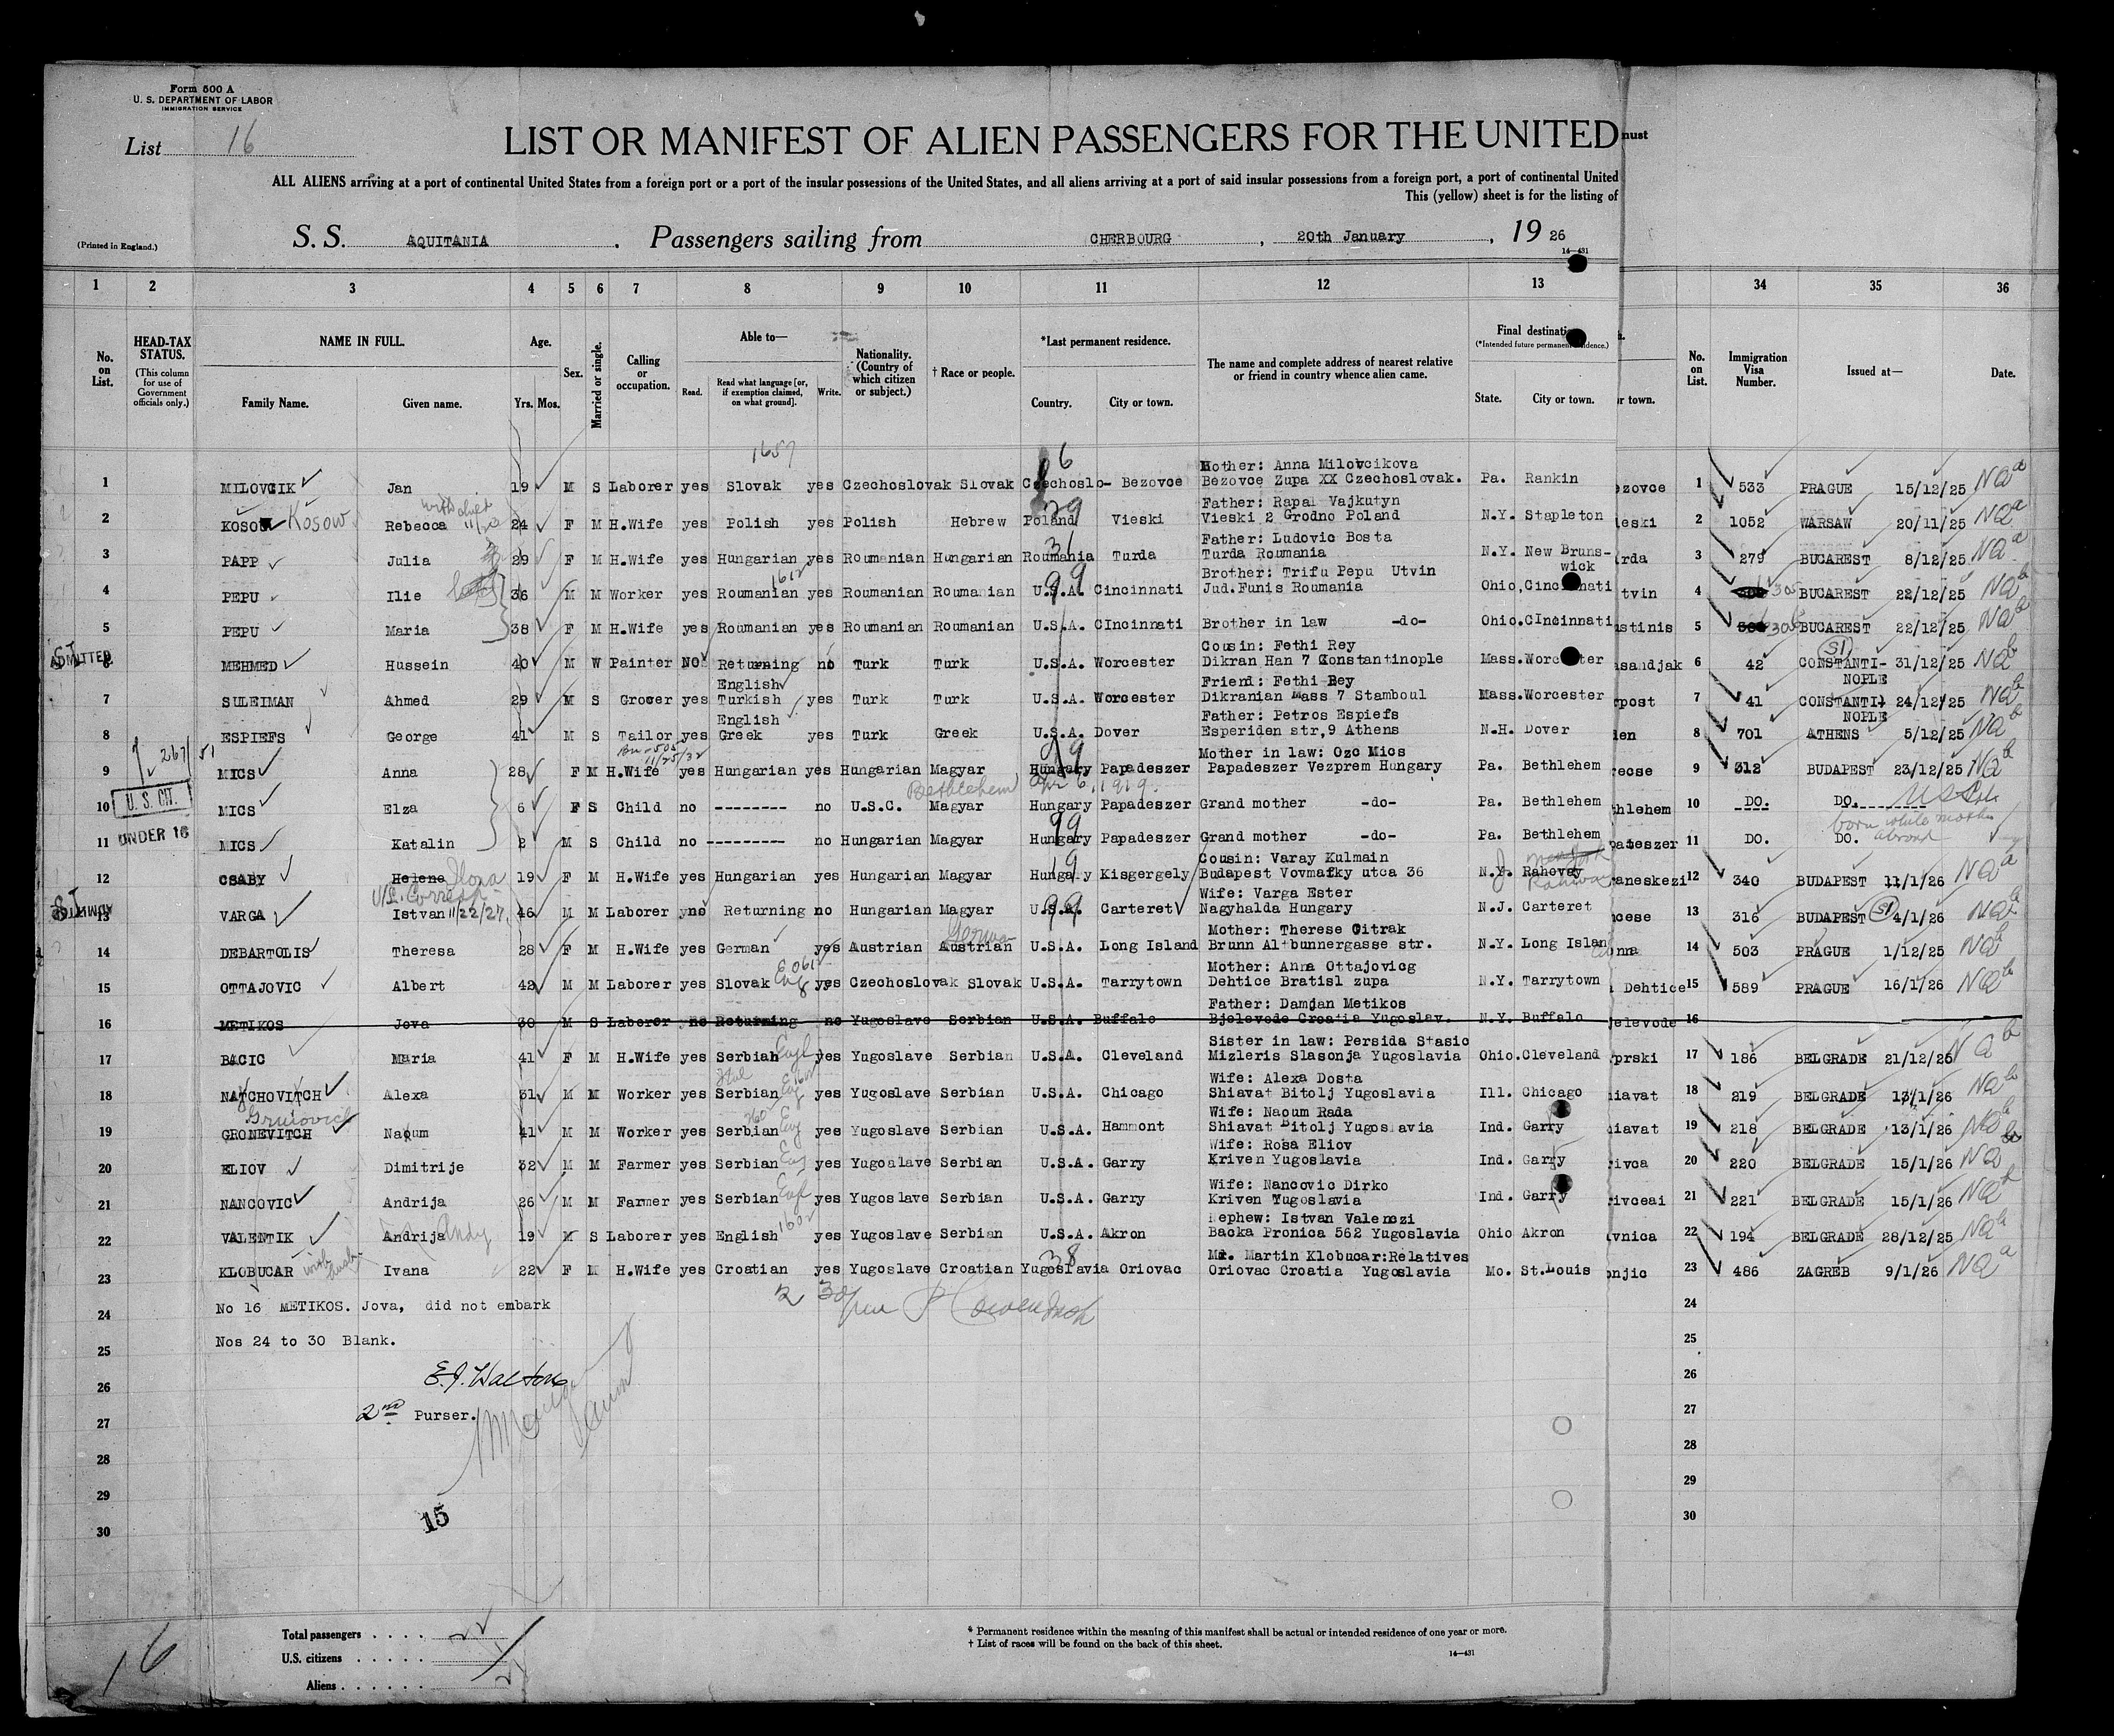 Form 500 A
U. S. DEPARTMENT OF LABOR
IMMIGRATION SERVICE
List 16
LIST OR MANIFEST OF ALIEN PASSENGERS FOR THE UNITED must
ALL ALIENS arriving at a port of continental United States from a foreign port or a port of the insular possessions of the United States, and all aliens arriving at a port of said insular possessions from a foreign port, a port of continental United
This (yellow) sheet is for the listing of
(Printed in England.)
S. S. AQUITANIA . Passengers sailing from CHERBOURG , 20th January , 19 26
14—431
1 2 3 4 5 6 7 8 9 10 11 12 13 34 35 36
No. on List.
HEAD-TAX STATUS.
(This column for use of Government officials only.)
NAME IN FULL.
Family Name. Given name.
Age.
Yrs. Mos.
Sex.
Married or single.
Calling or occupation.
Able to—
Read. Read what language [or, if exemption claimed, on what ground]. Write.
Nationality. (Country of which citizen or subject.)
† Race or people.
*Last permanent residence.
Country. City or town.
The name and complete address of nearest relative or friend in country whence alien came.
Final destination
(*Intended future permanent residence.)
State. City or town.
or town.
No. on List.
Immigration Visa Number.
Issued at—
Date.
1657
16
Mother: Anna Milovcikova
1 MILOVCIK Jan 19 M S Laborer yes Slovak yes Czechoslovak Slovak Czechoslo- Bezovce Bezovce Zupa XX Czechoslovak. Pa. Rankin ezovce 1 533 PRAGUE 15/12/25 NQa
Father: Rapal Vajkutyn
2 KOSOW Kosow Rebecca 11/22 24 F M H.Wife yes Polish yes Polish Hebrew Poland Vieski Vieski 2 Grodno Poland N.Y. Stapleton ieski 2 1052 WARSAW 20/11/25 NQa
Father: Ludovic Bosta
3 PAPP Julia 29 F M H.Wife yes Hungarian yes Roumanian Hungarian Roumania Turda Turda Roumania N.Y. New Bruns-wick rda 3 279 BUCAREST 8/12/25 NQa
Brother: Trifu Pepu Utvin
4 PEPU Ilie 36 M M Worker yes Roumanian 1612 yes Roumanian Roumanian U.S.A. Cincinnati Jud.Funis Roumania Ohio,Cincinnati tvin 4 305 BUCAREST 22/12/25 NQb
5 PEPU Maria 38 F M H.Wife yes Roumanian yes Roumanian Roumanian U.S.A. CIncinnati Brother in law -do- Ohio.CIncinnati ustinis 5 306 BUCAREST 22/12/25 NQb
S I
ADMITTED
Cousin: Fethi Rey
6 MEHMED Hussein 40 M W Painter NO Returning no Turk Turk U.S.A. Worcester Dikran Han 7 Constantinople Mass.Worcester sandjak 6 42 CONSTANTI-NOPLE SI 31/12/25 NQb
English Friend: Fethi Bey
7 SULEIMAN Ahmed 29 M S Grocer yes Turkish yes Turk Turk U.S.A. Worcester Dikranian Mass 7 Stamboul Mass.Worcester rpost 7 41 CONSTANTI-NOPLE 24/12/25 NQb
English Father: Petros Espiefs
8 ESPIEFS George 41 M S Tailor yes Greek yes Turk Greek U.S.A. Dover Esperiden str,9 Athens N.H. Dover 8 701 ATHENS 5/12/25 NQb
267/51
11/25/32
Mother in law: Ozo Mics
9 MICS Anna 28 F M H.Wife yes Hungarian yes Hungarian Magyar Hungary Papadeszer Papadeszer Vezprem Hungary Pa. Bethlehem 9 312 BUDAPEST 23/12/25 NQb
Bethlehem Apr 6, 1919.
U. S. CIT.
10 MICS Elza 6 F S Child no -------- no U.S.C. Magyar Hungary Papadeszer Grand mother -do- Pa. Bethlehem hlehem 10 DO. DO. --------
born while mother abroad
UNDER 16
11 MICS Katalin 2 M S Child no --------- no Hungarian Magyar Hungary Papadeszer Grand mother -do- Pa. Bethlehem 11 DO. DO.
Cousin: Varay Kulmain
12 CSABY Helene Ilona 19 F M H.Wife yes Hungarian yes Hungarian Magyar Hungary Kisgergely Budapest Vovmafky utca 36 N.Y. Rahovay New York Rahway aneskezi 12 340 BUDAPEST 11/1/26 NQa
S I
ADMITTED
Wife: Varga Ester
13 VARGA Istvan 11/22/27 46 M M Laborer no Returning no Hungarian Magyar U.S.A. Carteret Nagyhalda Hungary N.J. Carteret 13 316 BUDAPEST SI 4/1/26 NQb
Mother: Therese Citrak
14 DEBARTOLIS Theresa 28 F M H.Wife yes German yes Austrian Austrian German U.S.A. Long Island Brunn Altbunnergasse str. N.Y. Long Islan 14 503 PRAGUE 1/12/25 NQb
Mother: Anna Ottajovicg
15 OTTAJOVIC Albert 42 M M Laborer yes Slovak Eng yes Czechoslovak Slovak U.S.A. Tarrytown Dehtice Bratisl zupa N.Y. Tarrytown Dehtice 15 589 PRAGUE 16/1/26 NQb
Father: Damjan Metikos
16 METIKOS Jova 30 M S Laborer no Returning no Yugoslave Serbian U.S.A. Buffalo Bjelevode Croatia Yugoslav. N.Y. Buffalo jelevode 16
Sister in law: Persida Stasic
17 BACIC Maria 41 F M H.Wife yes Serbian Engl yes Yugoslave Serbian U.S.A. Cleveland Mizleris Slasonja Yugoslavia Ohio.Cleveland prski 17 186 BELGRADE 21/12/25 NQb
Wife: Alexa Dosta
18 NATCHOVITCH Alexa 31 M M Worker yes Serbian Eng yes Yugoslave Serbian U.S.A. Chicago Shiavat Bitolj Yugoslavia Ill. Chicago hiavat 18 219 BELGRADE 13/1/26 NQb
Gruiovich Wife: Naoum Rada
19 GRONEVITCH Naoum 41 M M Worker yes Serbian Eng yes Yugoslave Serbian U.S.A. Hammont Shiavat Bitolj Yugoslavia Ind. Garry hiavat 19 218 BELGRADE 13/1/26 NQb
Wife: Rosa Eliov
20 ELIOV Dimitrije 32 M M Farmer yes Serbian Eng yes Yugoalave Serbian U.S.A. Garry Kriven Yugoslavia Ind. Garry rivca 20 220 BELGRADE 15/1/26 NQb
Wife: Nancovic Dirko
21 NANCOVIC Andrija 26 M M Farmer yes Serbian Engl yes Yugoslave Serbian U.S.A. Garry Kriven Yugoslavia Ind. Garry rivceai 21 221 BELGRADE 15/1/26 NQb
Nephew: Istvan Valenczi
22 VALENTIK Andrija Andy 19 M S Laborer yes English 1602 yes Yugoslave Serbian U.S.A. Akron Backa Pronica 562 Yugoslavia Ohio Akron vnica 22 194 BELGRADE 28/12/25 NQb
38 Mr. Martin Klobucar:Relatives
23 KLOBUCAR Ivana 22 F M H.Wife yes Croatian yes Yugoslave Croatian Yugoslavia Oriovac Oriovac Croatia Yugoslavia Mo. St.Louis onjic 23 486 ZAGREB 9/1/26 NQa
24 No 16 METIKOS. Jova, did not embark 24
25 Nos 24 to 30 Blank. 25
26 E.J. Walton 26
27 2nd Purser. 27
28 28
29 29
15
30 30
Total passengers . . . . 22
U.S. citizens . . . . . 1
Aliens . . . . . . 21
16
* Permanent residence within the meaning of this manifest shall be actual or intended residence of one year or more.
† List of races will be found on the back of this sheet.
14—431